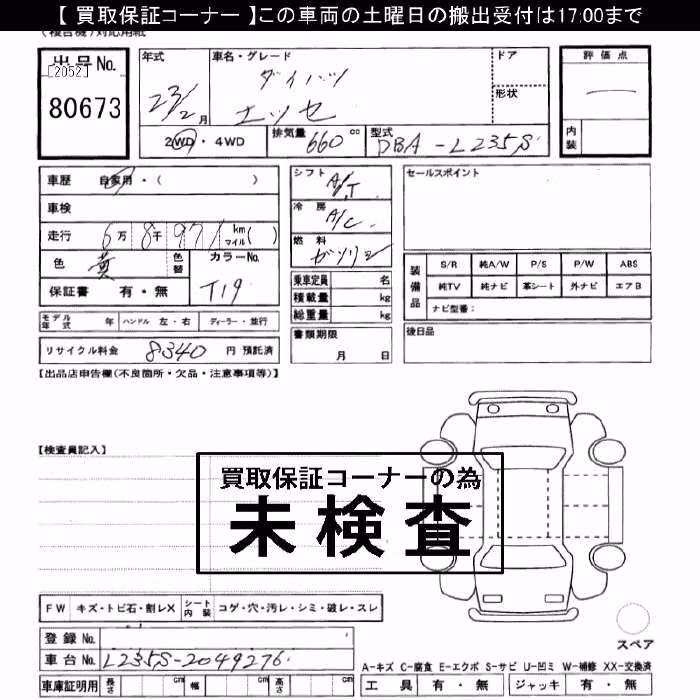 【 買取保証コーナー 】この車両の土曜日の搬出受付は17:00まで
(複合機)対応用紙
出品No.
[2052]
80673
年式
23/2月
車名・グレード
ダイハツ
エッセ
ドア
形状
評価点
内装
2WD・4WD
排気量 660 cc
型式 DBA-L235S
車歴 自家用・( )
車検
走行 6万8千971 km マイル( )
色 黄
色替
カラーNo.
T19
保証書 有・無
シフト A/T
冷房 A/C
燃料 ガソリン
乗車定員 名
積載量 kg
総重量 kg
セールスポイント
装備品
S/R 純A/W P/S P/W ABS
純TV 純ナビ 革シート 外ナビ エアB
ナビ型番：
モデル年式 年 ハンドル 左・右 ディーラー・並行
書類期限
月 日
後日品
リサイクル料金 8340 円 預託済
【出品店申告欄(不良箇所・欠品・注意事項等)】
【検査員記入】
買取保証コーナーの為
未検査
FW キズ・トビ石・割レX シート内装 コゲ・穴・汚レ・シミ・破レ・スレ
スペア
登録No.
車台No. L235S-2049276
A-キズ C-腐食 E-エクボ S-サビ U-凹ミ W-補修 XX-交換済
車庫証明用 長さ cm 幅 cm 高さ cm
工具 有・無 ジャッキ 有・無